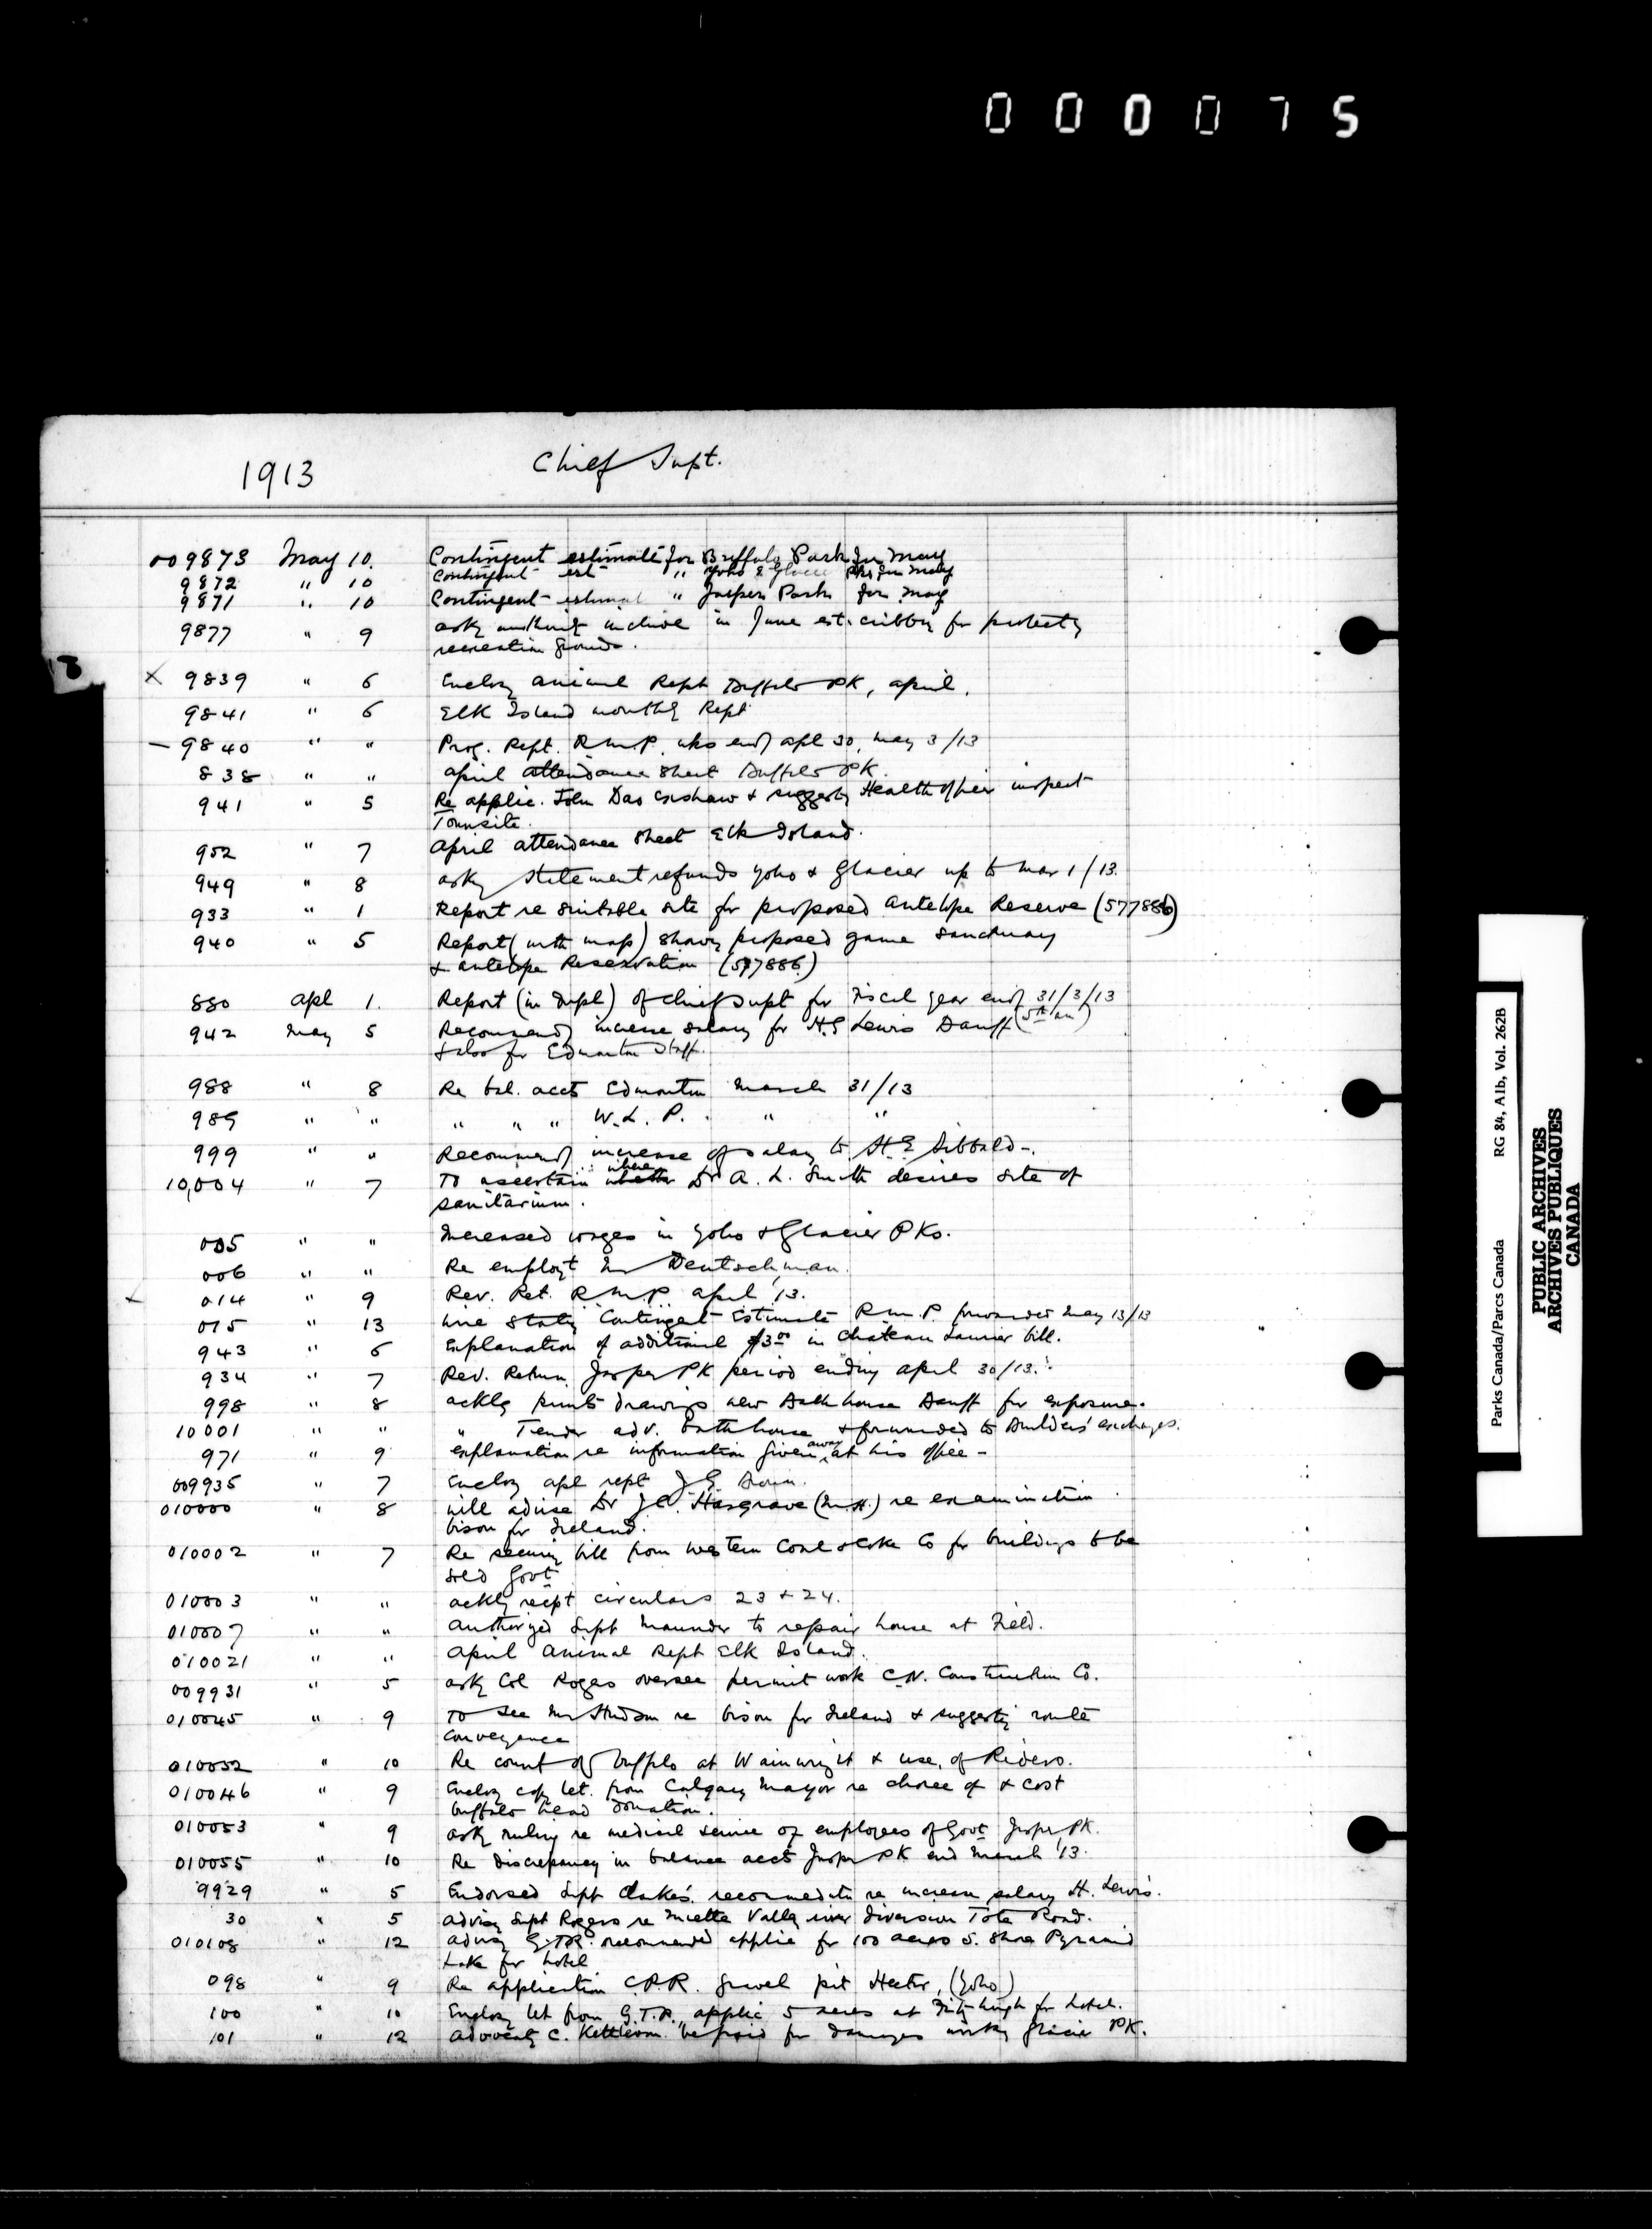 000075
1913 Chief Supt.
009873 May 10. Contingent estimate for Buffalo Park for May
9872 " 10 Contingent est " Yoho & Glacier Pks for May
9871 " 10 Contingent estimat " Jasper Park for May
9877 " 9 asky authority include in June est. cribbing for protectg
recreation grounds.
x 9839 " 6 Enclosg animal Rept Buffalo PK, april.
9841 " 6 Elk Island monthly Rept
- 9840 " " Prog. Rept. R.M.P. wks endg apl 30, may 3/13
838 " " april attendance sheet Buffalo PK.
941 " 5 Re applic. John Das & suggestg Health officer inspect
Townsite.
952 " 7 April attendance sheet Elk Island.
949 " 8 askg statement refunds Yoho & Glacier up to Mar 1/13.
933 " 1 Report re suitable site for proposed Antelope Reserve (577886)
940 " 5 Report (with map) showg proposed game sanctuary
& antelope Reservation (577886)
880 apl 1. Report (in dupl) of chief Supt for Fiscal year endg 31/3/13
942 May 5 Recommendg increase salary for H.G Lewis Banff
& also for Edmonton Staff.
988 " 8 Re bal. accts Edmonton March 31/13
989 " " " " " W.L.P. " "
999 " " Recommendg increase of salary to H.E Sibbald-.
10,004 " 7 To ascertain whether where Dr A. L. Smith desires site of
sanitarium.
005 " " Increased wages in Yoho & Glacier PKs.
006 " " Re employt Mr Deutschman.
014 " 9 Rev. Ret. R.M.P. april '13.
015 " 13 wire statg Contingent Estimate R.M.P. forwarded May 13/13
943 " 6 Explanation of additional $3.00 in Chateau Laurier bill.
934 " 7 Rev. Return Jasper PK period ending april 30/13.
998 " 8 acklg prints drawings new Bathhouse Banff for exposure.
10001 " " " Tender adv. Bathhouse & forwarded to Builders' exchanges.
971 " 9 explanation re information given away at his office -
009935 " 7 Enclosg apl rept J.G.
010000 " 8 will advise Dr J.C. Hargrave (M.H.) re examination
bison for Ireland.
010002 " 7 Re securing bill from Western Coal & Coke Co for buildings to be
sold Govt
010003 " " acklg recpt circulars 23 & 24.
010007 " " authorized Supt Maunder to repair house at Field.
010021 " " April animal Rept Elk Island.
009931 " 5 askg Col Rogers oversee permit work C.N. Construction Co.
010045 " 9 To see Mr Hudson re bison for Ireland & suggestg route
conveyance
010052 " 10 Re count of buffalo at Wainwright & use of Riders.
010046 " 9 Enclosg copy let. from Calgary Mayor re choice of & cost
buffalo head donation.
010053 " 9 askg ruling re medical service of employees of Govt Jasper PK.
010055 " 10 Re discrepancy in balance accts Jasper PK end March '13.
9929 " 5 Endorsed Supt Clarke's recommendatn re increase salary H. Lewis.
30 " 5 advisg Supt Rogers re Miette Valley river diversion Tote Road.
010108 " 12 advisg G.T.R. recommended applic for 100 acres S. Shore Pyramid
Lake for hotel
098 " 9 Re application C.P.R. gravel pit Hector, (Yoho)
100 " 10 Enclosg let from G.T.R. applic 5 acres at Fitzhugh for hotel.
101 " 12 advocatg C. be paid for damages workg Glacier PK.
Parks Canada/Parcs Canada RG 84, A1b, Vol. 262B
PUBLIC ARCHIVES
ARCHIVES PUBLIQUES
CANADA